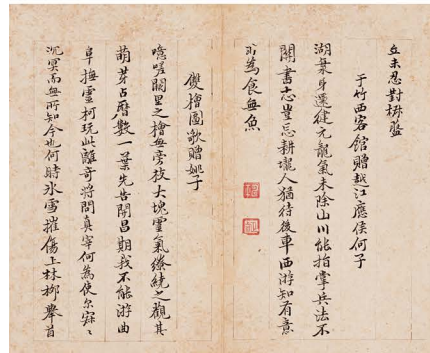 未忍對盤
于竹西客館贈越江應侯何子
湖身還健元龍氣未除山川能指掌兵法不
關書志豈忘耕壠人猶待後車西游知有意
不為食無魚
雙檜圖歌贈姚子
噫嗟闕里之檜無旁枝大塊靈氣繚繞之觀其
萌芽占曆數一葉先告開昌期我不能游曲
阜撫靈柯玩此離奇將問真宰何為使尔寂〻
沉冥而無所知今也何時氷雪摧傷上林柳舉首